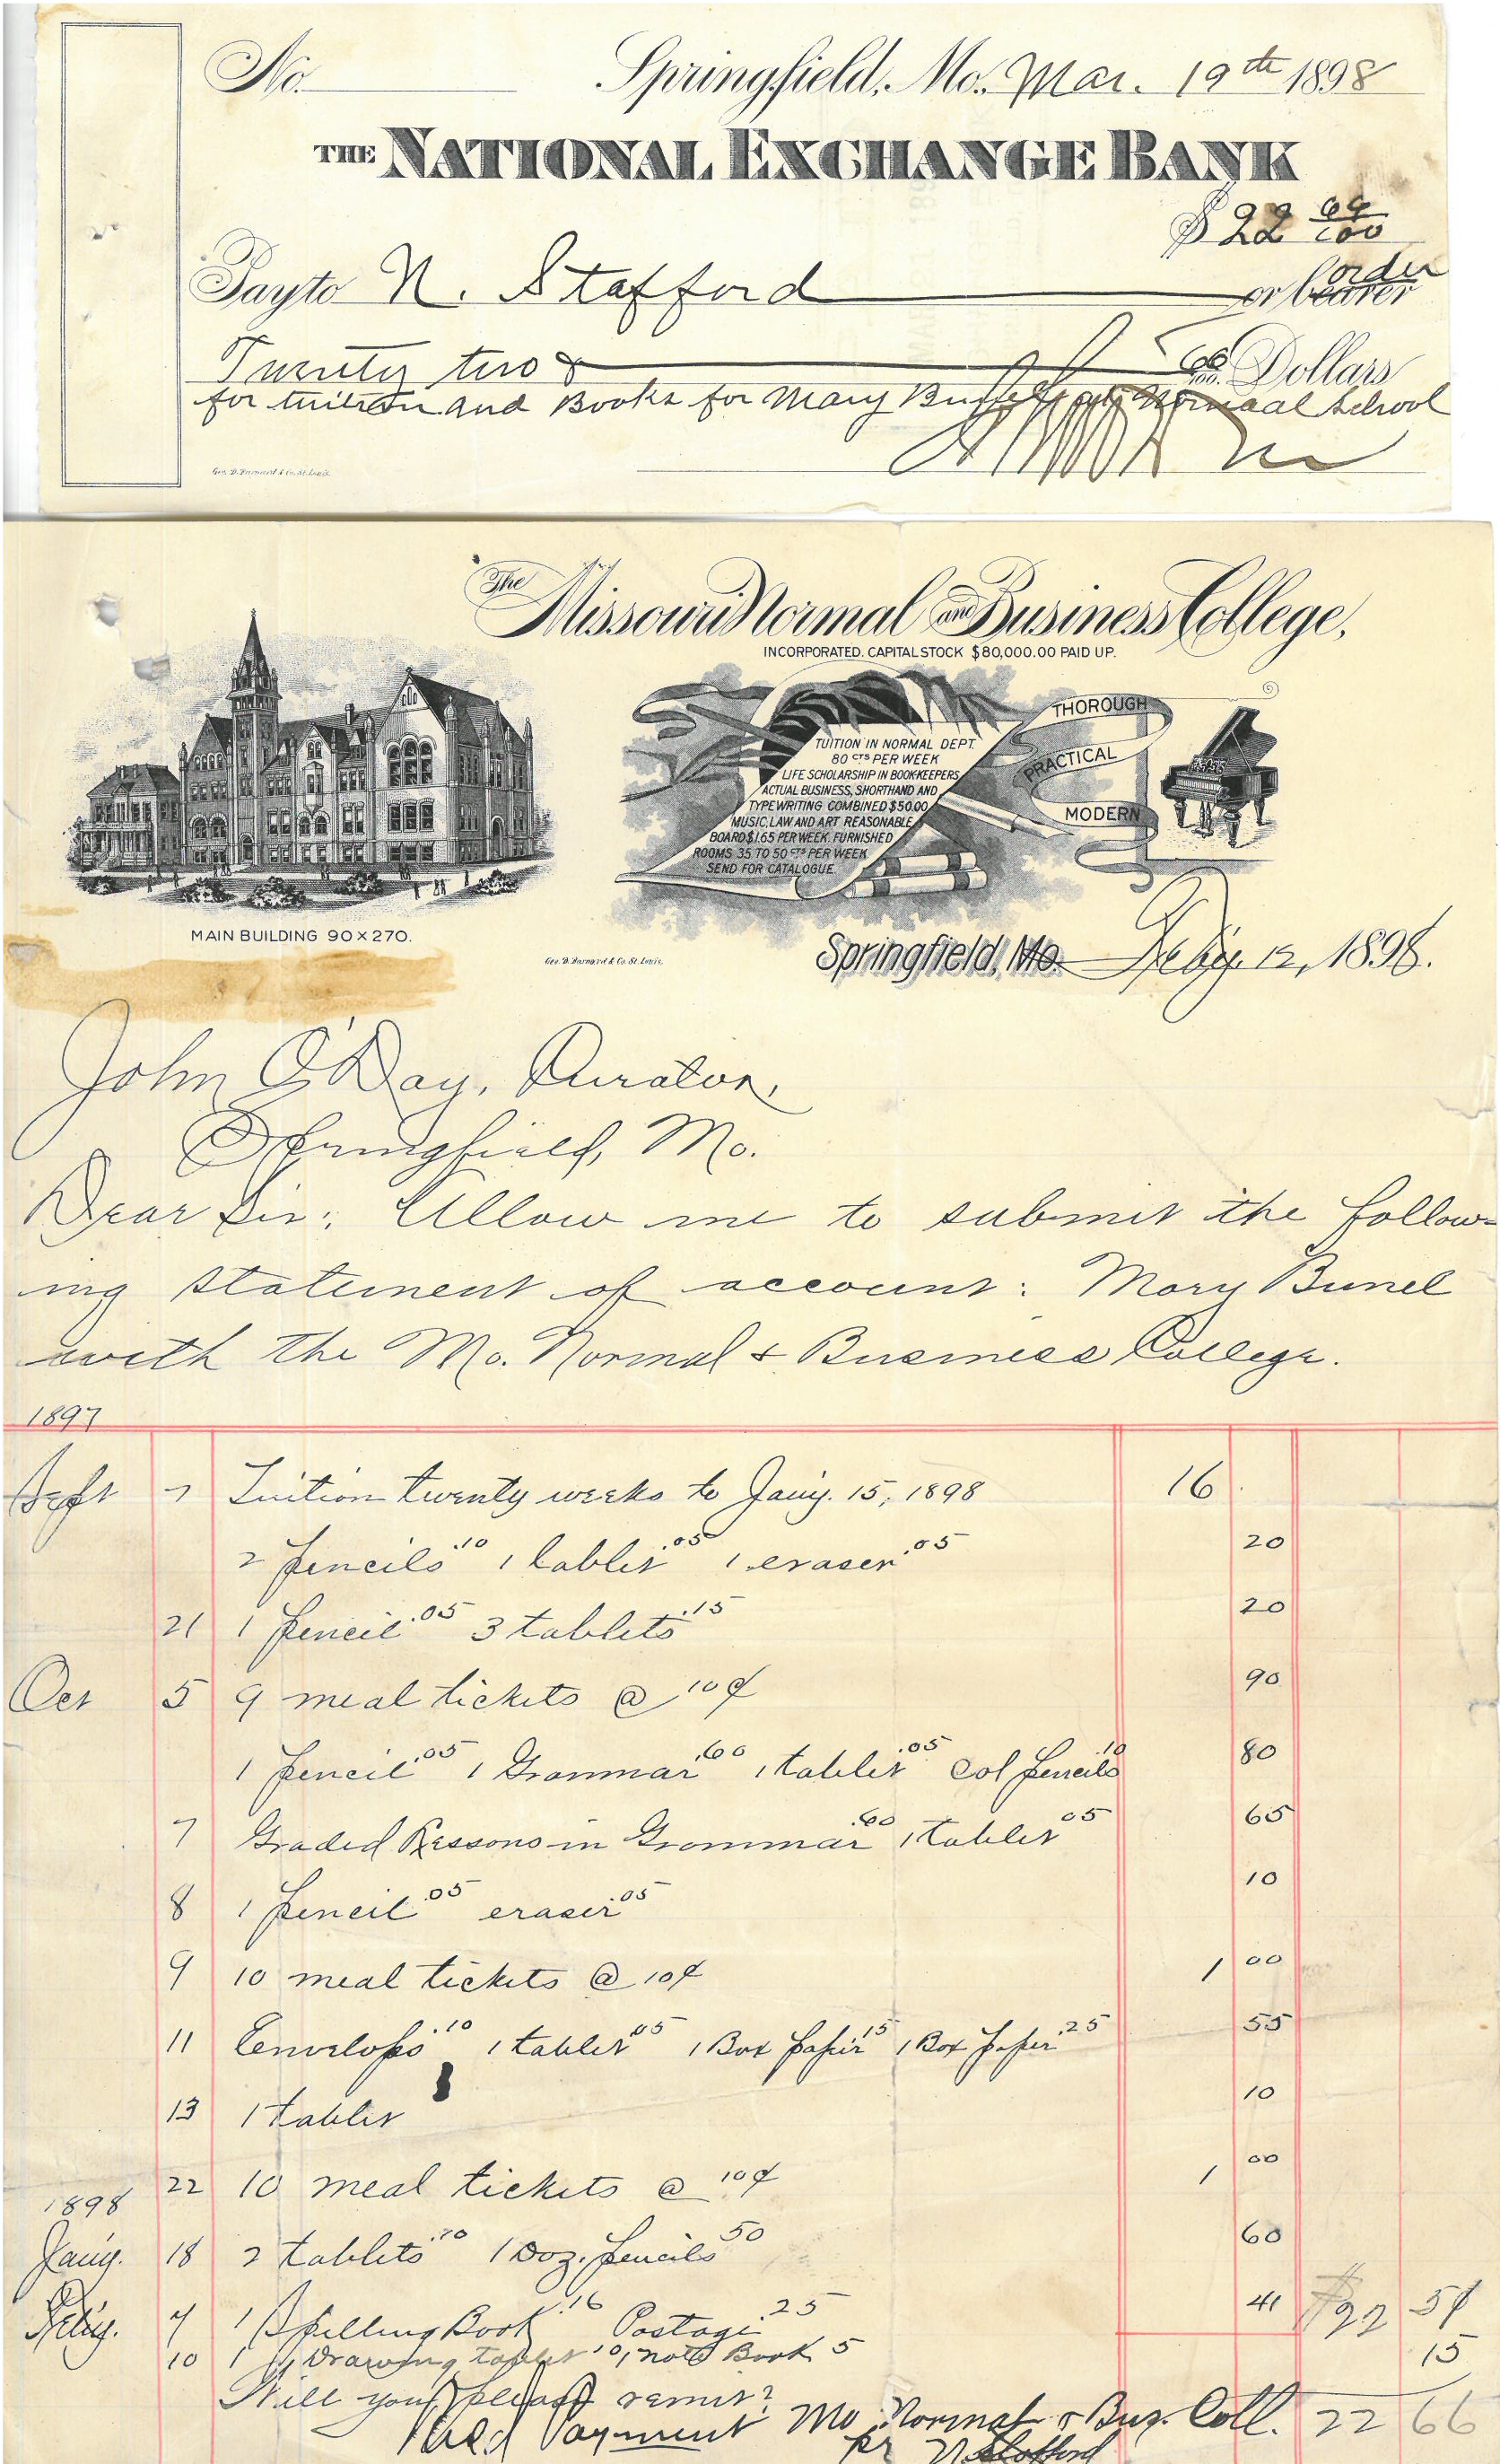 No. Springfield, Mo. Mar. 19th 1898
THE NATIONAL EXCHANGE BANK
$ 22 66/100
Pay to N. Stafford or bearer order
Twenty two & 66/100 Dollars
for tuition and Books for Mary at Normaal School
Geo. D. Barnard & Co. St. Louis.
The Missouri Normal and Business College,
INCORPORATED. CAPITAL STOCK $80,000.00 PAID UP.
TUITION IN NORMAL DEPT.
80 CTS PER WEEK
LIFE SCHOLARSHIP IN BOOK-KEEPERS
ACTUAL BUSINESS, SHORTHAND AND
TYPEWRITING COMBINED $50.00
MUSIC, LAW AND ART REASONABLE
BOARD $1.65 PER WEEK. FURNISHED
ROOMS 35 TO 50 CTS PER WEEK
SEND FOR CATALOGUE.
THOROUGH
PRACTICAL
MODERN
MAIN BUILDING 90 × 270.
Geo. D. Barnard & Co. St. Louis.
Springfield, Mo. Feb'y. 12, 1898.
John O'Day, Curator,
Springfield, Mo.
Dear Sir: Allow me to submit the follow-
ing statement of account: Mary Bunel
with the Mo. Normal & Business College.
1897
Sept 7 Tuition twenty weeks to Jan'y. 15, 1898 16
2 pencils .10 1 tablet .05 1 eraser .05 20
21 1 pencil .05 3 tablets .15 20
Oct 5 9 meal tickets @ 10¢ 90
1 pencil .05 1 Grammar .60 1 tablet .05 Col pencils .10 80
7 Graded Lessons in Grammar .60 1 tablet 05 65
8 1 pencil .05 eraser .05 10
9 10 meal tickets @ 10¢ 1 00
11 Envelops .10 1 tablet .05 1 Box paper 15 1 Box paper .25 55
13 1 tablet 10
22 10 meal tickets @ 10¢ 1 00
1898
Jan'y. 18 2 tablets .10 1 Doz. pencils 50 60
Feb'y. 7 1 Spelling Book .16 Postage .25 41 $22 51
10 1 Drawing tablet 10, 1 note Book 5 15
Will you please remit?
Recd Payment Mo Normal & Buz. Coll. 22 66
pr N Stafford